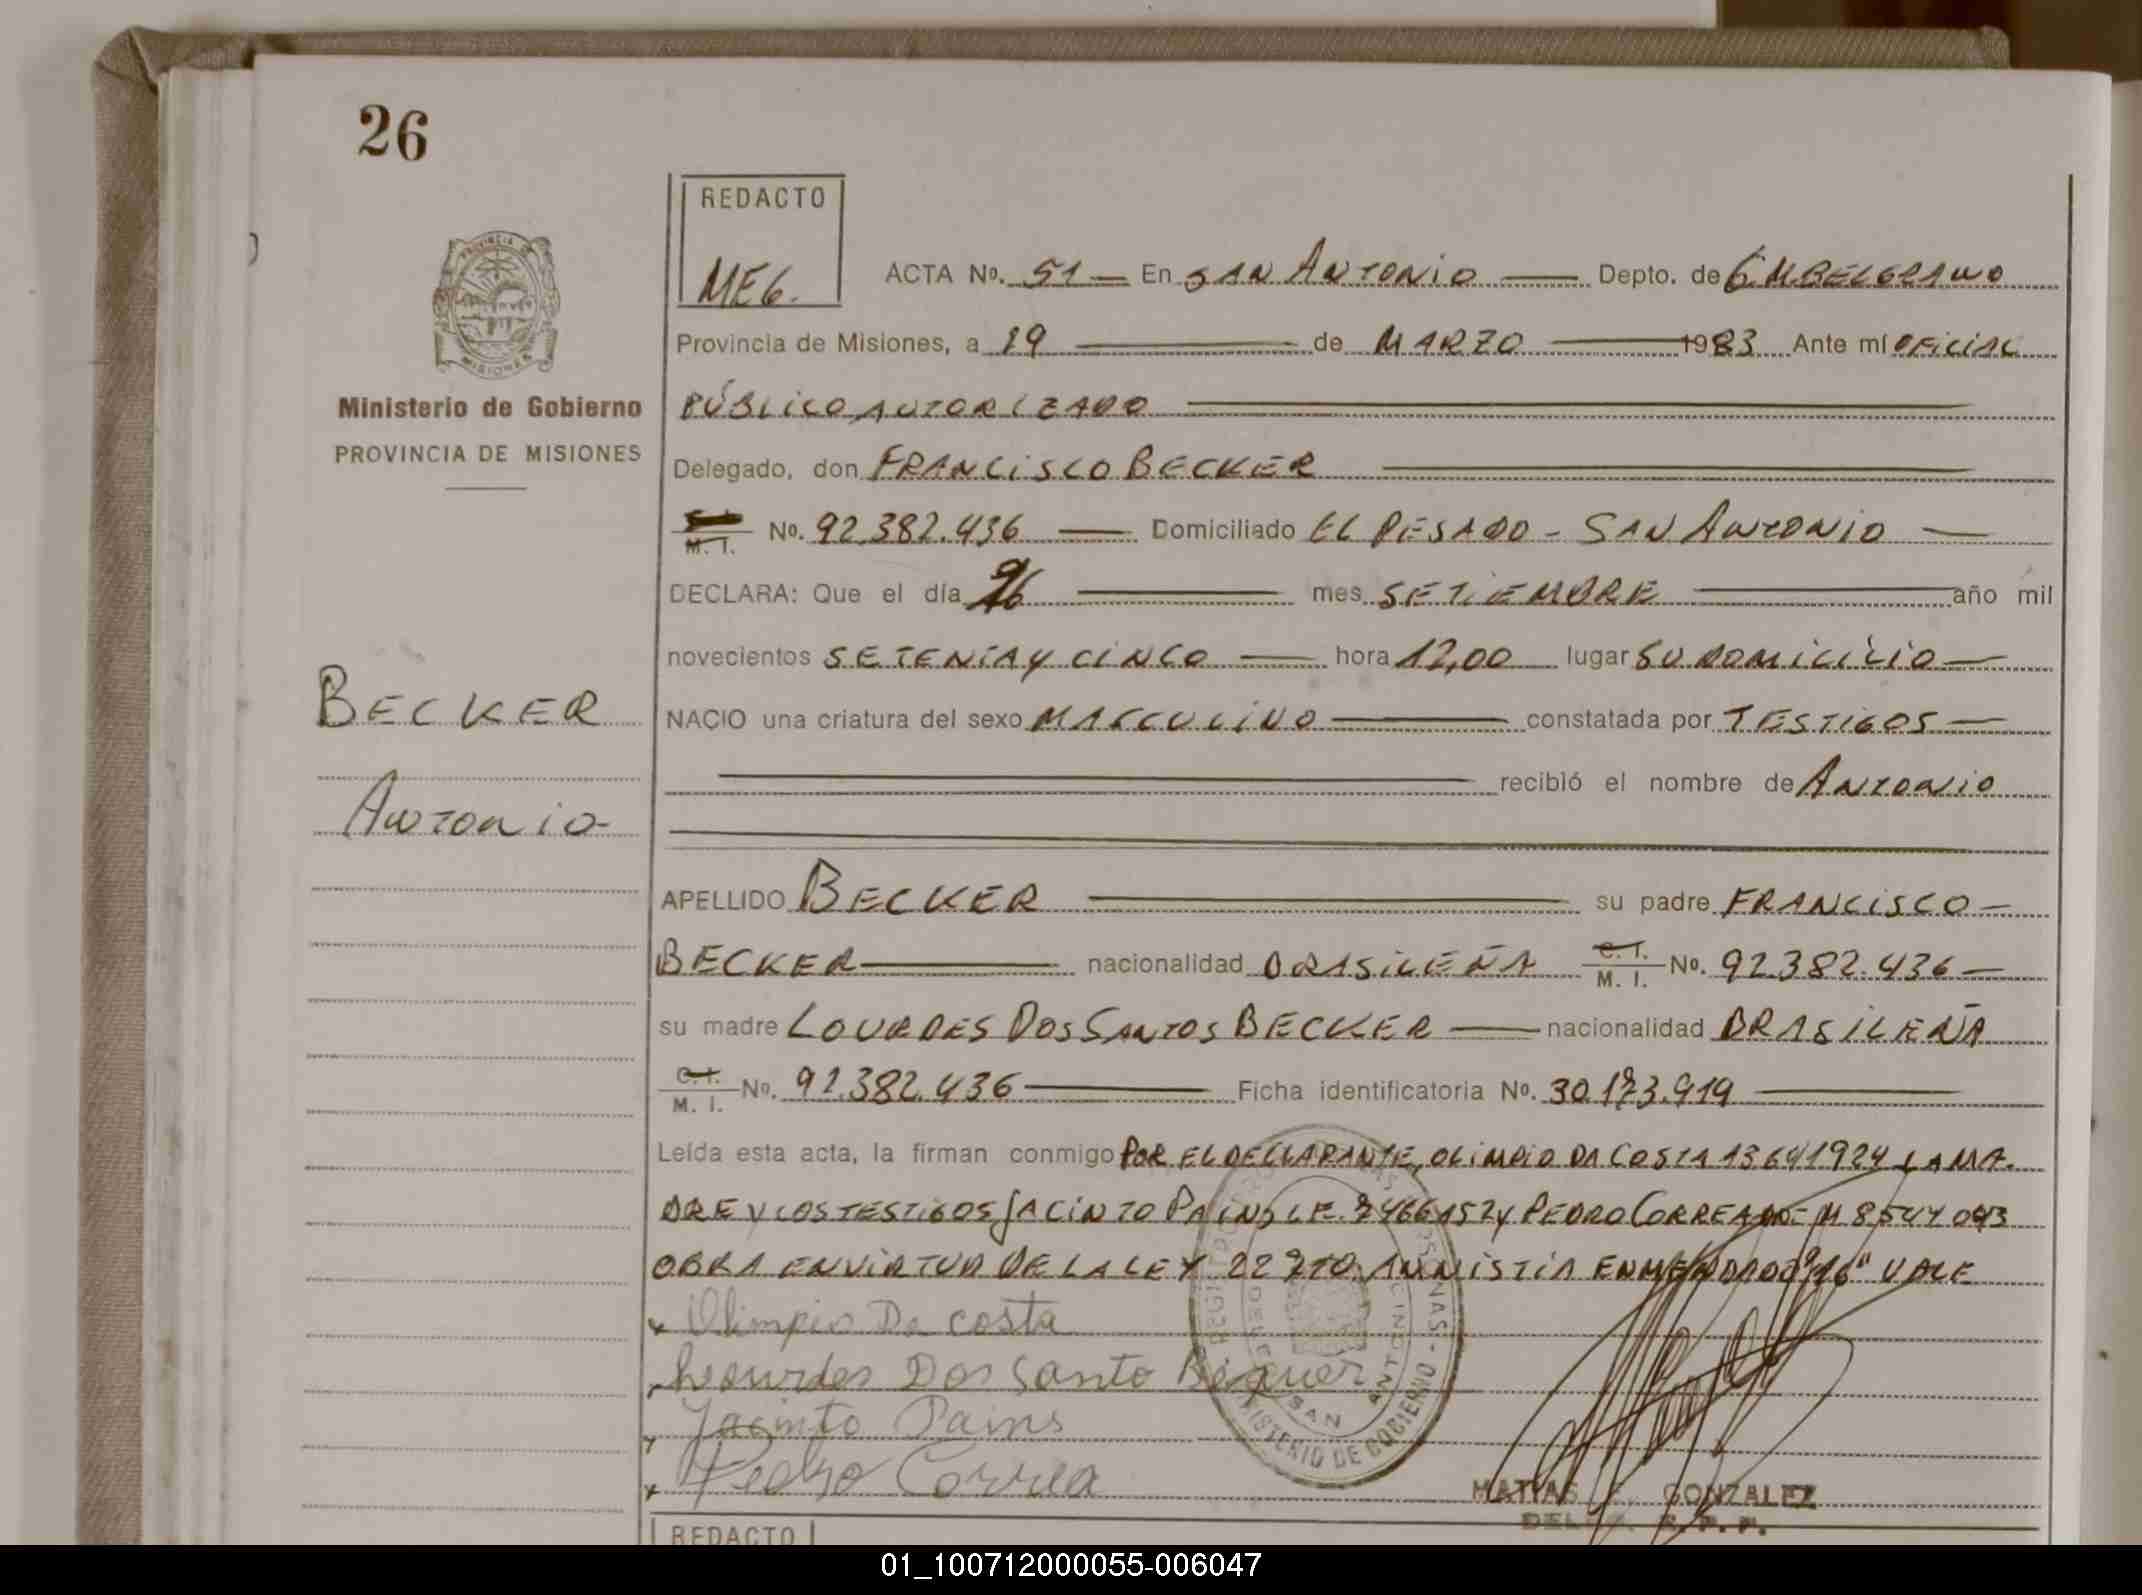 26
REDACTO
MEG.
ACTA Nº. 51 — En SAN ANTONIO — Depto. de G M BELGRANO
Provincia de Misiones, a 19 — de MARZO — 1983 Ante mí OFICIAL
Ministerio de Gobierno
PROVINCIA DE MISIONES
PÚBLICO AUTORIZADO
Delegado, don FRANCISCO BECKER
M. I. No. 92.382.436 — Domiciliado EL PESADO - SAN ANTONIO —
DECLARA: Que el día 96 — mes SETIEMBRE — año mil
novecientos SETENTA Y CINCO — hora 12,00 lugar SU DOMICILIO —
BECKER
Antonio
NACIO una criatura del sexo MASCULINO — constatada por TESTIGOS —
recibió el nombre de ANTONIO
APELLIDO BECKER — su padre FRANCISCO —
BECKER — nacionalidad BRASILEÑA C. I. M. I. No. 92.382.436 —
su madre LOURDES DOS SANTOS BECKER — nacionalidad BRASILEÑA
C. I. M. I. No. 92.382.436 — Ficha identificatoria No. 30.173.919 —
Leída esta acta, la firman conmigo POR EL DECLARANTE, OLIMPIO DA COSTA 13641924 LA MA-
DRE Y LOS TESTIGOS JACINTO PAINS LE. Y PEDRO CORREA M 8544043
OBRA EN VIRTUD DE LA LEY AMNISTIA ENMENDADO VALE
x Olimpio Da costa
Lourdes Dos Santo Bequer
Jacinto Pains
x Pedro Correa
SAN ANTONIO
MINISTERIO DE GOBIERNO
MATIAS GONZALEZ
REDACTO
01_100712000055-006047